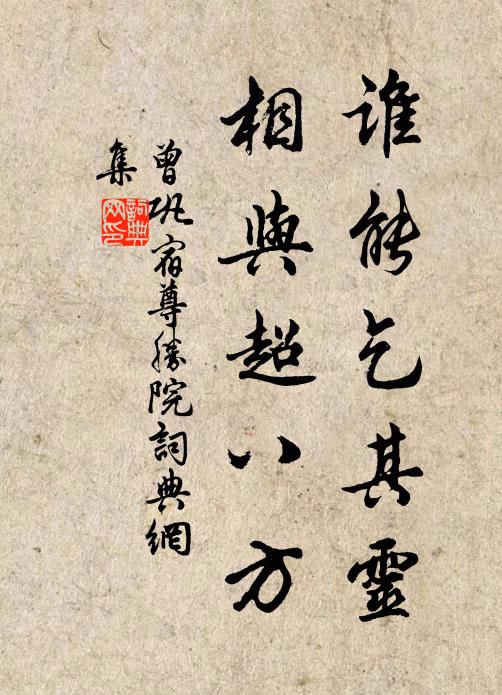 誰能乞其靈
相與超八方
曾鞏宿尊勝院詞典網
集
詞典
网印